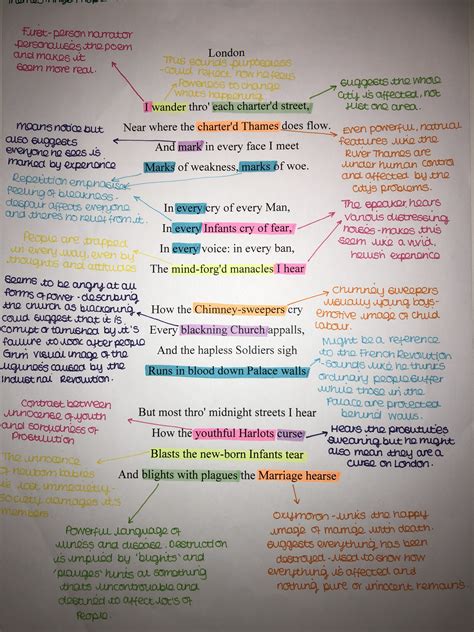 First-person narrator
personalises the poem
and makes it
seem more real.
This sounds purposeless
- could reflect how he feels
Powerless to change
what's happening
suggests the whole
city is affected, not
just one area.
London
I wander thro' each charter'd street,
Near where the charter'd Thames does flow.
And mark in every face I meet
Marks of weakness, marks of woe.
means notice but
also suggests
everyone he sees is
marked by experience
Even powerful, natural
features like the
River Thames are
under human control
and affected by the
city's problems.
Repetition emphasises
feeling of bleakness.
despair affects everyone
and there's no relief from it.
In every cry of every Man,
In every Infants cry of fear,
In every voice: in every ban,
The mind-forg'd manacles I hear
The speaker hears
various distressing
noises - makes this
seem like a vivid,
hellish experience
People are trapped
in every way, even by
thoughts and attitudes
Seems to be angry at all
forms of power - describing
the church as blackening
could suggest that it is
corrupt or tarnished by it's
failure to look after people
Grim visual image of the
ugliness caused by the
Industrial Revolution.
How the Chimney-sweepers cry
Every blackning Church appalls,
And the hapless Soldiers sigh
Runs in blood down Palace walls
chimney sweepers
usually young boys -
emotive image of child
labour.
Might be a reference
to the French Revolution
- sounds like he thinks
ordinary people suffer
while those in the
Palace are protected
behind walls.
Contrast between
innocense of youth
and sordidness of
Prostitution
But most thro' midnight streets I hear
How the youthful Harlots curse
Blasts the new-born Infants tear
And blights with plagues the Marriage hearse
Hears the prostitutes
swearing but he might
also mean they are a
curse on London.
The innocence
of newborn babies
is lost immediatly -
society damages it's
members.
Powerful language of
illness and disease. Destruction
is implied by 'blights' and
'plagues' hints at something
that's uncontrollable and
destined to affect lot's of
People.
Oxymoron - links the happy
image of marriage with death.
suggests everything has been
destroyed - used to show how
everything is affected and
nothing pure or innocent remains.